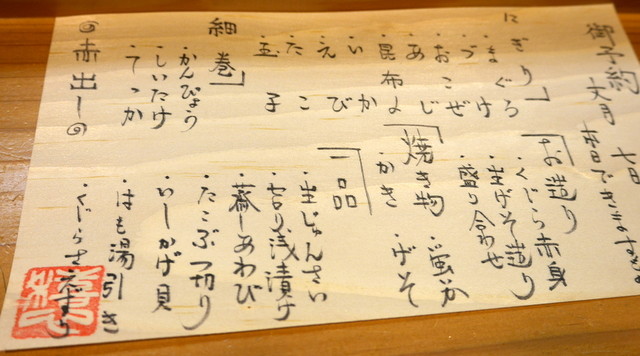 御予約
にぎり」
・まぐろ
・づけ
・おこぜ
・あじ
・昆布〆
・いか
・えび
・たこ
・玉子
細巻」
・かんぴょう
・しいたけ
・てっか
◎赤出し◎
「お造り
・くじら赤身
・生げそ造り
・盛り合わせ
「焼き物
・かき
・げそ
「一品
・生じゅんさい
・浅漬け
・蒸しあわび
・たこぶつ切り
・いしかげ貝
・はも湯引き
・くじらさえずり